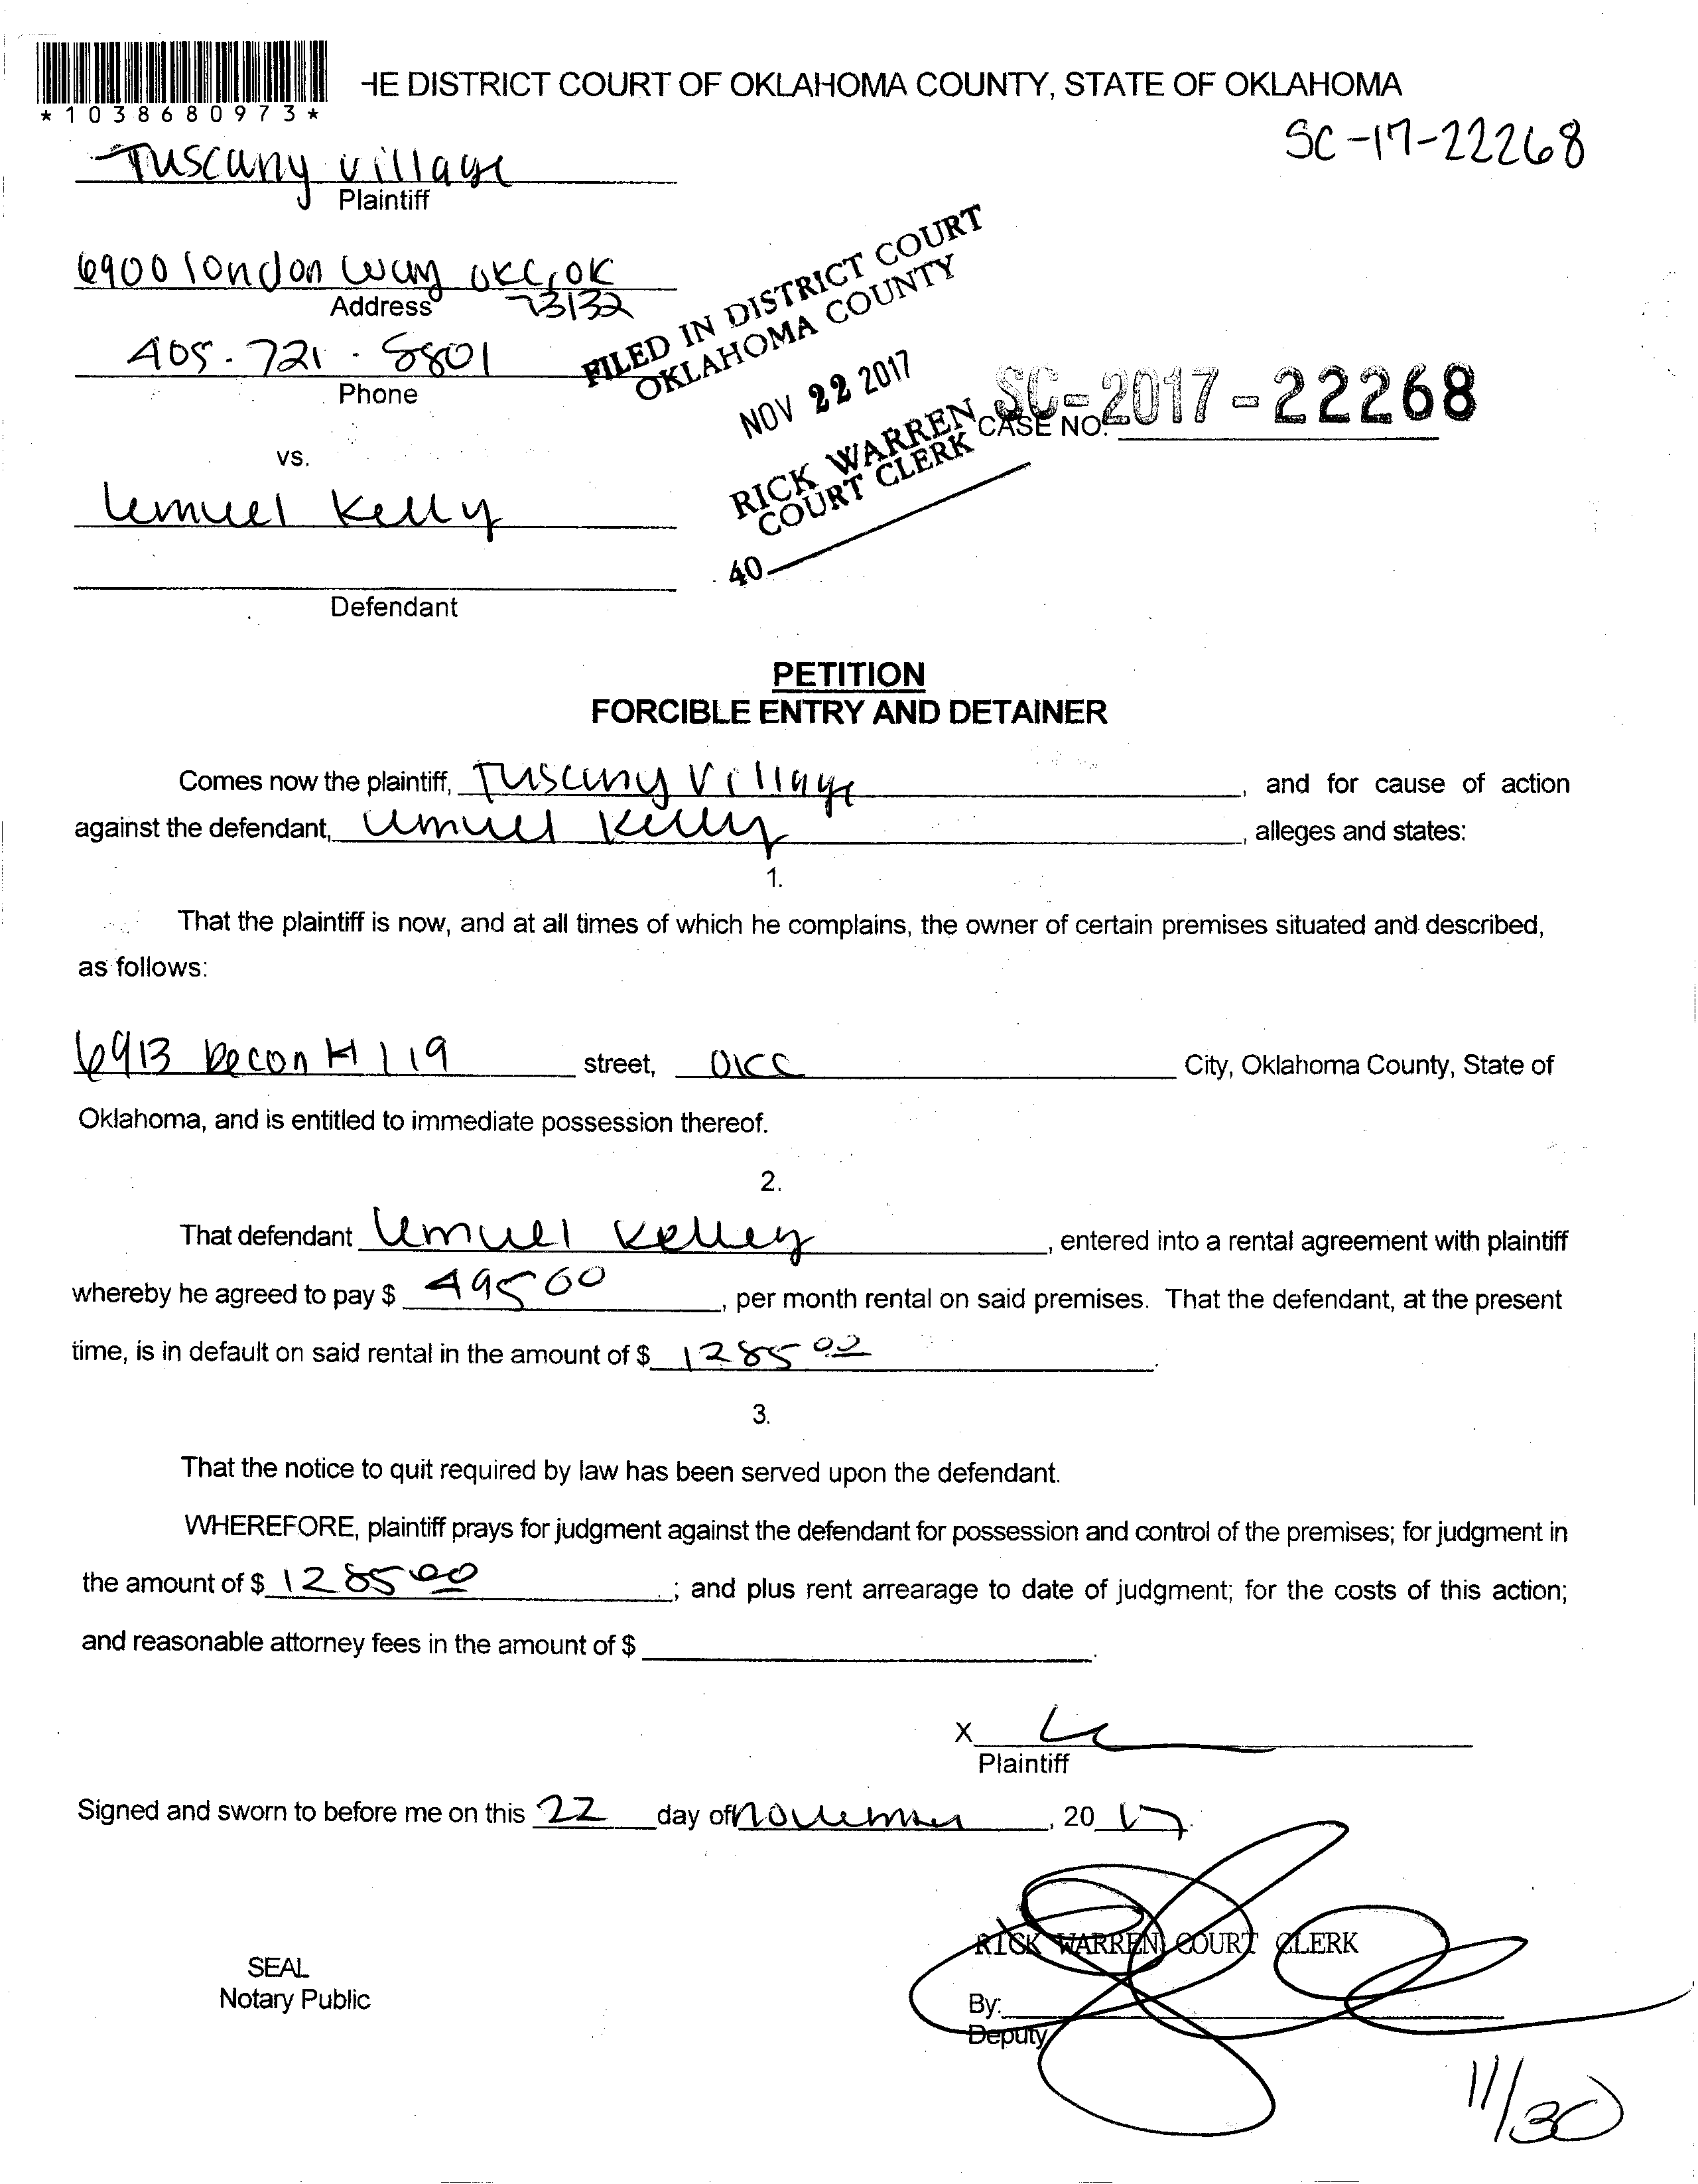 HE DISTRICT COURT OF OKLAHOMA COUNTY, STATE OF OKLAHOMA
*1038680973*
SC-17-22268
Tuscany Village
Plaintiff
6900 london way OKC, OK
Address 73132
405-721-8801
Phone
FILED IN DISTRICT COURT
OKLAHOMA COUNTY
NOV 22 2017
RICK WARREN
COURT CLERK
40
CASE NO. SC-2017-22268
vs.
Lemuel Kelly
Defendant
PETITION
FORCIBLE ENTRY AND DETAINER
Comes now the plaintiff, Tuscany Village, and for cause of action
against the defendant, Lemuel Kelly, alleges and states:
1.
That the plaintiff is now, and at all times of which he complains, the owner of certain premises situated and described,
as follows:
6913 #119 street, OKC City, Oklahoma County, State of
Oklahoma, and is entitled to immediate possession thereof.
2.
That defendant Lemuel Kelley, entered into a rental agreement with plaintiff
whereby he agreed to pay $ 495 00, per month rental on said premises. That the defendant, at the present
time, is in default on said rental in the amount of $ 1285 00.
3.
That the notice to quit required by law has been served upon the defendant.
WHEREFORE, plaintiff prays for judgment against the defendant for possession and control of the premises; for judgment in
the amount of $ 1285 00; and plus rent arrearage to date of judgment; for the costs of this action;
and reasonable attorney fees in the amount of $
X
Plaintiff
Signed and sworn to before me on this 22 day of november, 20 17.
RICK WARREN COURT CLERK
SEAL
Notary Public
By:
Deputy
11/30